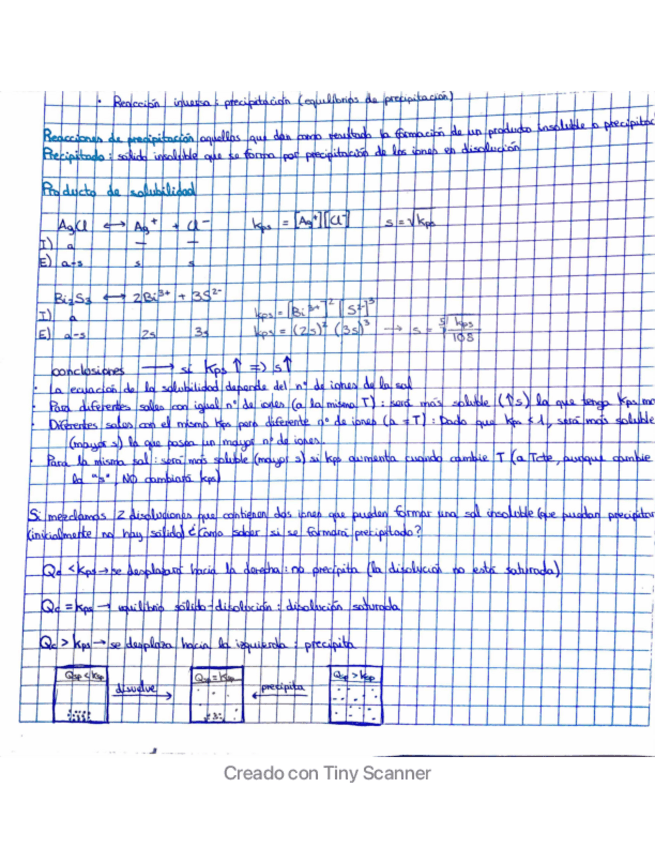 · Reacción inversa: precipitación (equilibrios de precipitación)
Reacciones de precipitación aquellas que dan como resultado la formación de un producto insoluble o precipitac
Precipitado: sólido insoluble que se forma por precipitación de los iones en disolución
Producto de solubilidad
AgCl ⟷ Ag⁺ + Cl⁻ kps = [Ag⁺][Cl⁻] s = √kps
I) a — —
E) a-s s s
Bi₂S₃ ⟷ 2Bi³⁺ + 3S²⁻
I) a kps = [Bi³⁺]² [S²⁻]³
E) a-s 2s 3s kps = (2s)² (3s)³ → s = ⁵√(kps/108)
conclosiones → si Kps ↑ => s↑
· La ecuación de la solubilidad depende del nº de iones de la sal
· Para diferentes sales con igual nº de iones (a la misma T): será más soluble (↑s) la que tenga Kps ma
· Diferentes sales con el mismo Kps pero diferente nº de iones (a = T): Dado que Kps < 1, será más soluble
(mayor s) la que posea un mayor nº de iones.
· Para la misma sal: será más soluble (mayor s) si kps aumenta cuando cambie T (a Tcte, aunque cambie
la "s", NO cambiará kps)
Si mezclamos 2 disoluciones que contienen dos iones que pueden formar una sal insoluble (que puedan precipitar
(inicialmente no hay sólido) ¿Cómo saber si se formará precipitado?
Qc < Kps → se desplazará hacia la derecha: no precipita (la disolución no está saturada)
Qc = kps → equilibrio sólido-disolución: disolución saturada
Qc > Kps → se desplaza hacia la izquierda: precipita
Qsp < ksp Qsp = Ksp Qsp > ksp
disuelve precipita
Creado con Tiny Scanner